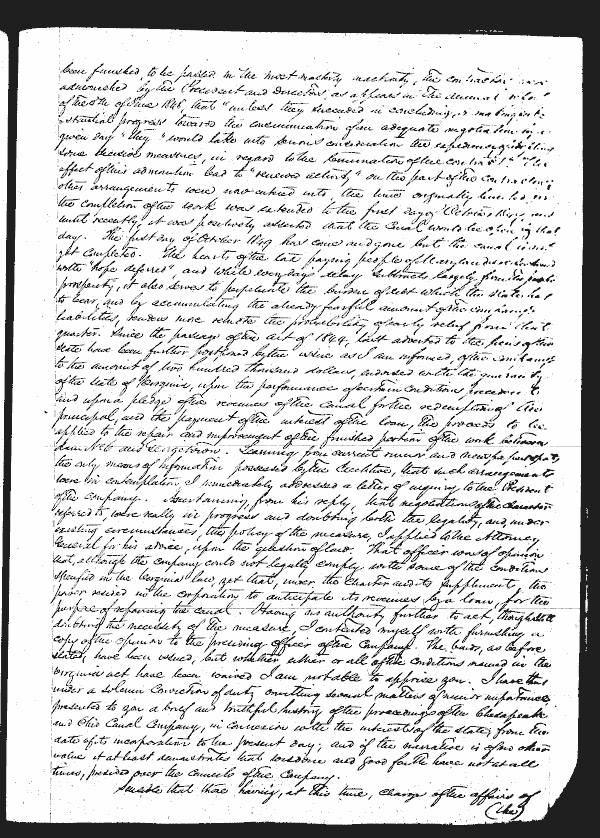 been finished, to be passed in the most masterly inactivity, the contractors were
admonished by the President and Directors as appears in the annual
of the 5th of June 1848, that "unless they succeeded in concluding, or making
substantial progress towards the consummation of an adequate negotiation by a
given day" they "would take into serious consideration the expediency of adopting
some decisive measures, in regard to the termination of the contract" The
effect of this admonition lead to "renewed activity," on the part of the contractors
other arrangements were now entered into, the time originally limited, for
the completion of the work was extended to the first day of October 1849, and
until recently, it was positively asserted that the Canal would be open by that
day. The first day of October 1849 has come and gone but the canal is not
yet completed. The hearts of the tax paying people of Maryland
with "hope deferred", and while every day's delay subtracts largely from the public
prosperity, it also serves to perpetuate the burden of debt which the state has
to bear, and by accumulating the already fearful amount of the company's
liabilities, renders more remote the probability of early relief from that
quarter. Since the passage of the act of 1844, last adverted to, the liens of the
state have been further postponed by the issue as I am informed, of the company's
to the amount of two hundred thousand dollars, endorsed with the guarantee
of the State of Virginia, upon the performance of certain conditions precedent
and upon a pledge of the revenues of the canal for the redemption of the
principal, and the payment of the interest of the loan, the proceeds to be
applied to the repair and improvement of the finished portion of the work between
dam No 6 and Georgetown. Learning from current rumor and newspaper report,
the only means of information possessed by the Executive, that such arrangements
were in contemplation, I immediately addressed a letter of inquiry to the President
of the company. Ascertaining, from his reply, that negotiations of the character
referred to, were really in progress and doubting both the legality, and under
existing circumstances, the policy of the measure, I applied to the Attorney
General for his advice, upon the question of law. That officer was of opinion
that, although the company could not legally comply with some of the conditions
specified in the Virginia law, yet that, under the Charter and its supplements, the
power vested in the corporation to anticipate its revenues by a loan, for the
purpose of repairing the canal. Having no authority further to act, though still
doubting the necessity of the measure, I contented myself with furnishing a
copy of the opinion to the presiding officer of the Company. The bonds, as before
stated, have been issued, but whether either or all of the conditions named in the
Virginia act have been waived I am not able to apprise you. I have thus
under a solemn conviction of duty, omitting several matters of minor importance,
presented to you a brief and truthful history of the proceedings of the Chesapeake
and Ohio Canal Company, in connexion with the interests of the state, from the
date of its incorporation to the present day; and if the narrative is of no other
value it at least demonstrates that wisdom and good faith have not at all
times, presided over the councils of the Company.
Sensible that those having, at this time, charge of the affairs of
(the)